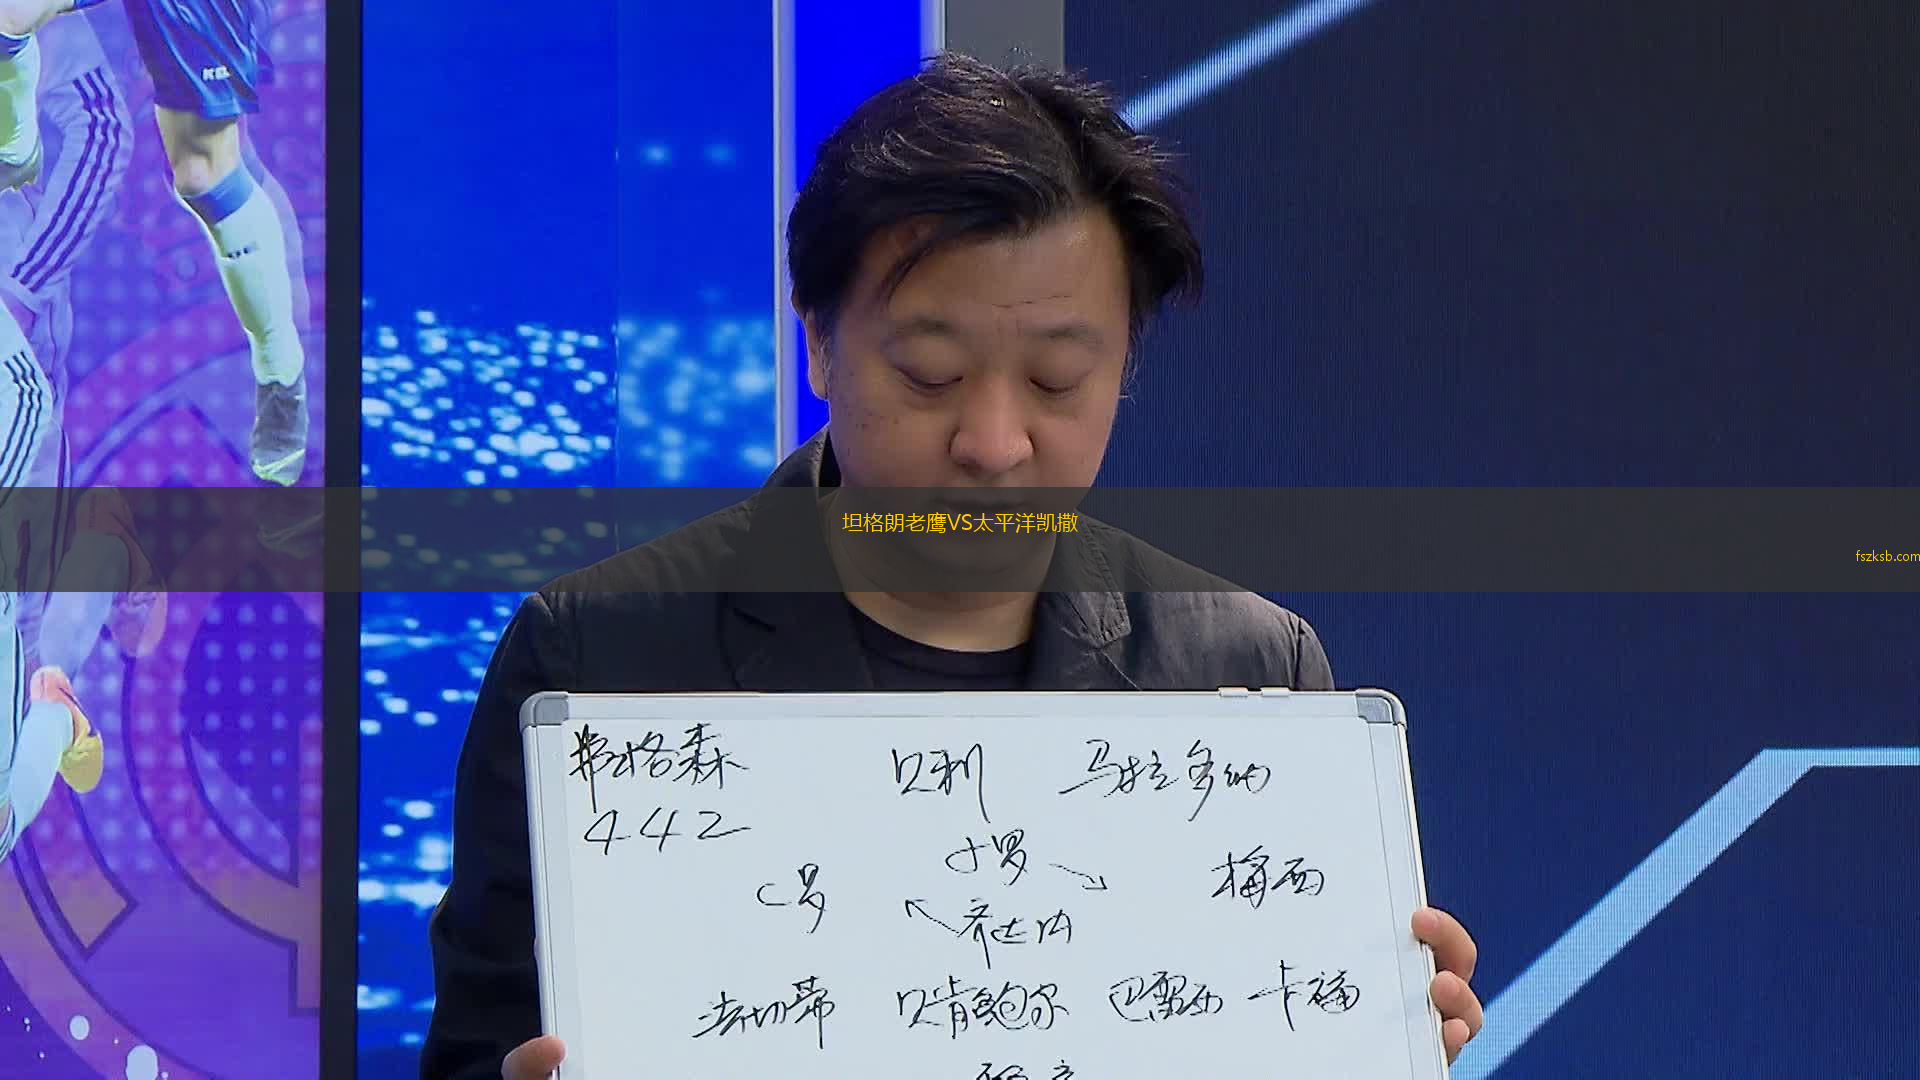 KEL
坦格朗老鹰VS太平洋凯撒
fszksb.com
弗格森 贝利 马拉多纳
442
小罗
C罗 梅西
齐达内
法切蒂 贝肯鲍尔 巴雷西 卡福